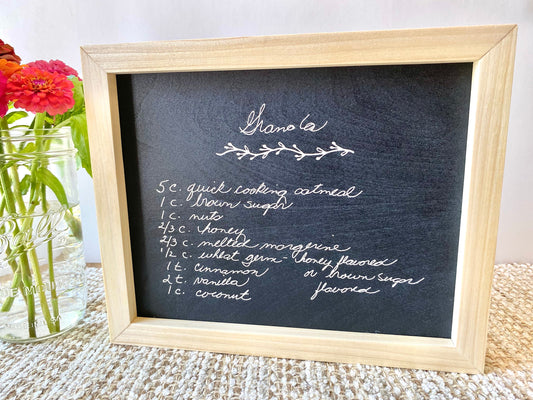 Granola
5 c. quick cooking oatmeal
1 c. brown sugar
1 c. nuts
2/3 c. honey
2/3 c. melted margerine
1/2 c. wheat germ - honey flavored
1 t. cinnamon or brown sugar
2 t. vanilla flavored
1 c. coconut